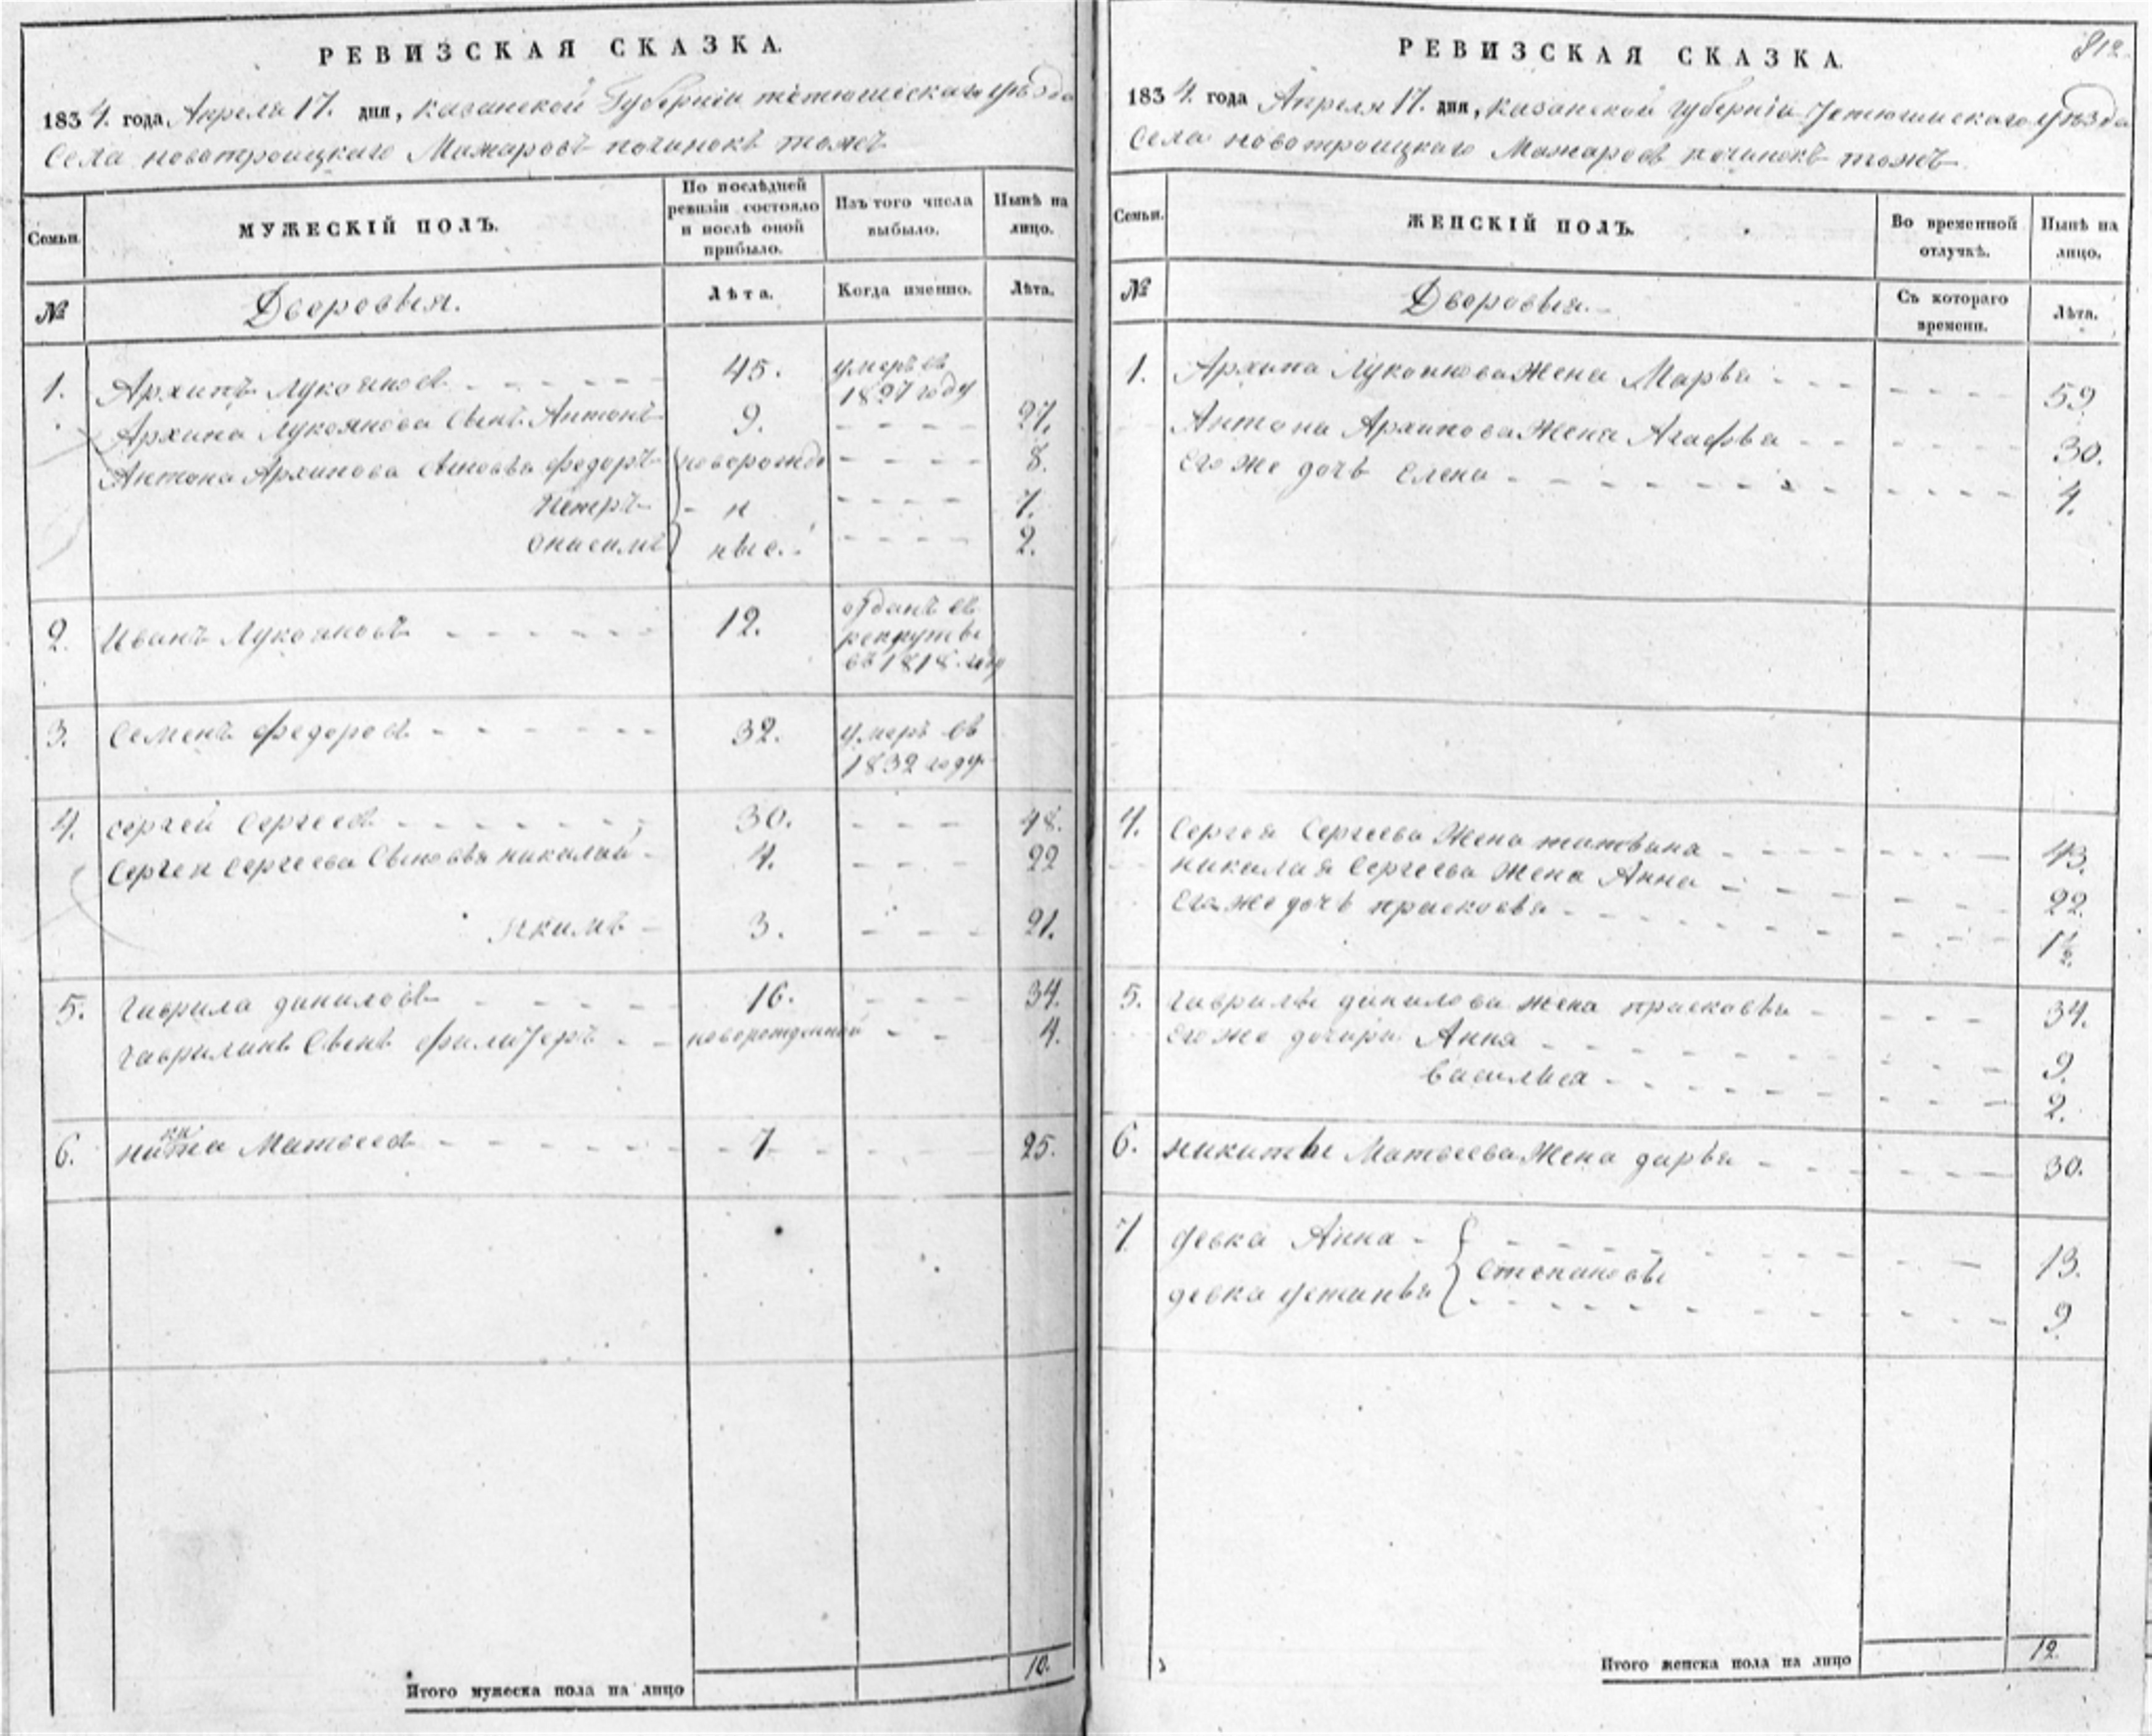 РЕВИЗСКАЯ СКАЗКА.
1834. года, Апреля 17. дня, казанской Губерніи тетюшскаго уѣзда
Села новотроицкаго Мажаровъ починокъ тожъ
Семьи.
МУЖЕСКІЙ ПОЛЪ.
По послѣдней ревизіи состояло и послѣ оной прибыло.
Изъ того числа выбыло.
Нынѣ на лицо.
№
Дворовыя.
Лѣта.
Когда именно.
Лѣта.
1. Архипъ Лукояновъ 45. умеръ въ 1827 году
Архипа Лукоянова Сынъ Антонъ 9. 27.
Антона Архипова Сыновья федоръ новорожде 8.
Петръ н 7.
Онисимъ ные. 2.
2. Иванъ Лукояновъ 12. отданъ въ рекруты въ 1818. году
3. Семенъ федоровъ 32. умеръ въ 1832 году
4. сергей Сергеевъ 30. 48.
Сергея Сергеева Сыновья николай 4. 22
Якимъ 3. 21.
5. гаврила даниловъ 16. 34.
гаврилинъ Сынъ новорожденной 4.
6. никита Матвеевъ 7 25.
Итого мужеска пола на лицо 10.
812.
РЕВИЗСКАЯ СКАЗКА.
1834. года Апреля 17. дня, казанской губерніи Тетюшскаго уѣзда
Села новотроицкаго Мажаровъ починокъ тожъ
Семьи.
ЖЕНСКІЙ ПОЛЪ.
Во временной отлучкѣ.
Нынѣ на лицо.
№
Дворовыя.
Съ котораго времени.
Лѣта.
1. Архипа Лукоянова Жена Марья 59.
Антона Архипова Жена Агафья 30.
Его же дочь Елена 4.
4. Сергея Сергеева Жена татьяна 43.
николая Сергеева Жена Анна 22.
Его же дочь прасковья 1½.
5. гаврилы данилова жена прасковья 34.
Его же дочери Анна 9.
василиса 2.
6. никиты Матвеева Жена дарья 30.
7 девка Анна 13.
Степановы
девка устинья 9
Итого женска пола на лицо 12